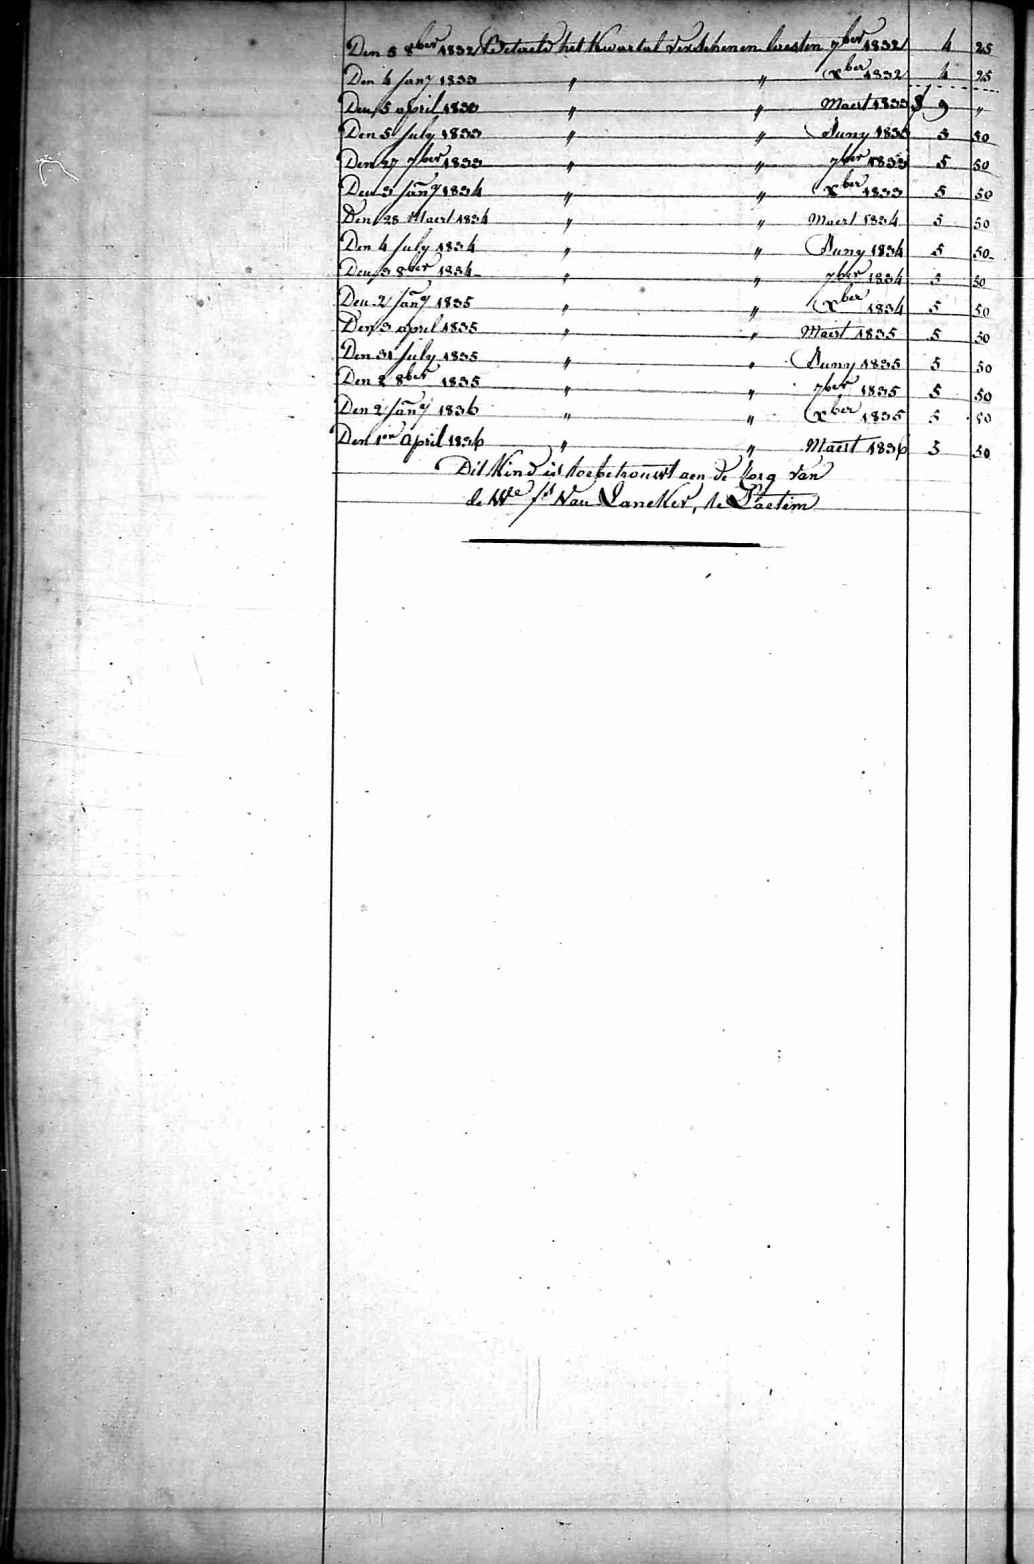 Den 5 8ber 1832 Betaeld het Kwartal verschenen leesten 7ber 1832 4 25
Den 4 Jany 1833 " " Xber 1832 4 25
Den 5 april 1833 " " Maert 1833 9 "
Den 5 July 1833 " " Juny 1833 5 50
Den 27 7ber 1833 " " 7ber 1833 5 50
Den 3 Jany 1834 " " Xber 1833 5 50
Den 28 Maert 1834 " " Maert 1834 5 50
Den 4 July 1834 " " Juny 1834 5 50
Den 3 8ber 1834 " " 7ber 1834 5 50
Den 2 Jany 1835 " " Xber 1834 5 50
Den 3 april 1835 " " Maert 1835 5 50
Den 31 July 1835 " " Juny 1835 5 50
Den 2 8ber 1835 " " 7ber 1835 5 50
Den 2 Jany 1836 " " Xber 1835 5 50
Den 1en April 1836 " " Maert 1836 5 50
Dit Kind is toebetrouwt aen de zorg van
de We Van Lancker, te Laetem